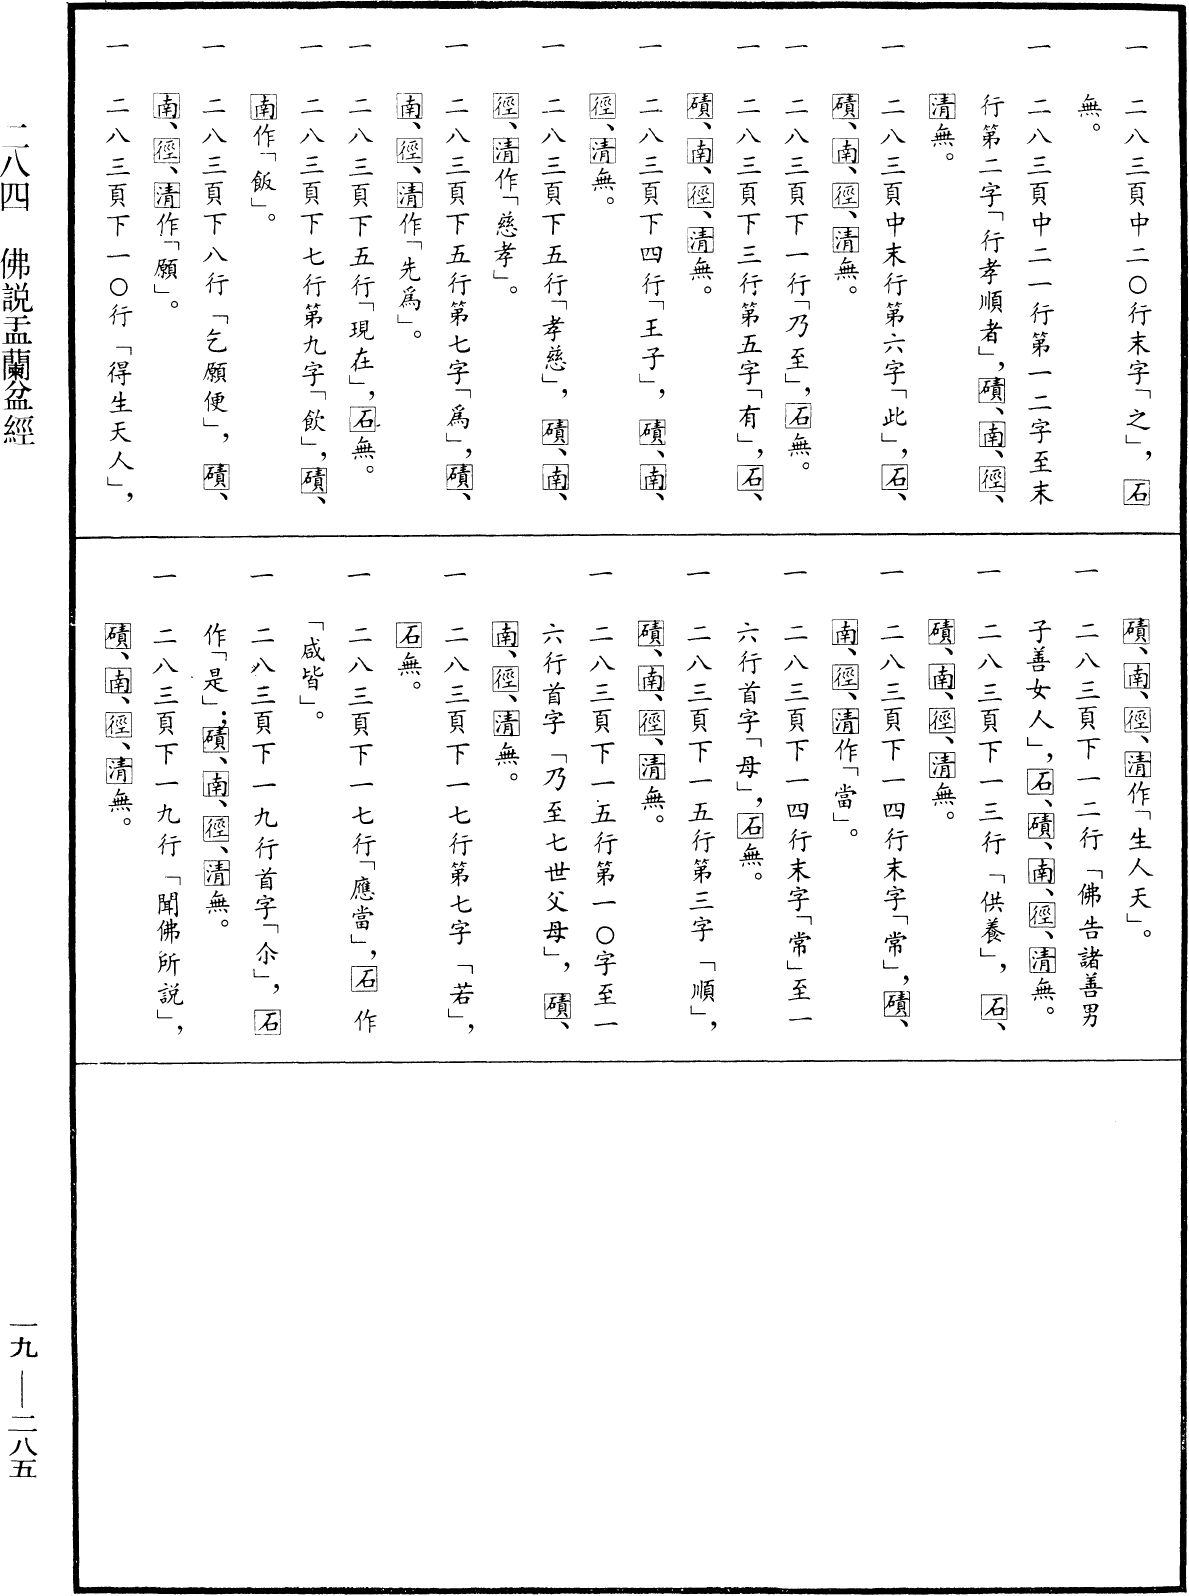 一　二八三頁中二〇行末字「之」，石
無。
一　二八三頁中二一行第一二字至末
行第二字「行孝順者」，磧、南、徑、
清無。
一　二八三頁中末行第六字「此」，石、
磧、南、徑、清無。
一　二八三頁下一行「乃至」，石無。
一　二八三頁下三行第五字「有」，石、
磧、南、徑、清無。
一　二八三頁下四行「王子」，磧、南、
徑、清無。
一　二八三頁下五行「孝慈」，磧、南、
徑、清作「慈孝」。
一　二八三頁下五行第七字「爲」，磧、
南、徑、清作「先爲」。
一　二八三頁下五行「現在」，石無。
一　二八三頁下七行第九字「飲」，磧、
南作「飯」。
一　二八三頁下八行「乞願便」，磧、
南、徑、清作「願」。
一　二八三頁下一〇行「得生天人」，
磧、南、徑、清作「生人天」。
一　二八三頁下一二行「佛告諸善男
子善女人」，石、磧、南、徑、清無。
一　二八三頁下一三行「供養」，石、
磧、南、徑、清無。
一　二八三頁下一四行末字「常」，磧、
南、徑、清作「當」。
一　二八三頁下一四行末字「常」至一
六行首字「母」，石無。
一　二八三頁下一五行第三字「順」，
磧、南、徑、清無。
一　二八三頁下一五行第一〇字至一
六行首字「乃至七世父母」，磧、
南、徑、清無。
一　二八三頁下一七行第七字「若」，
石無。
一　二八三頁下一七行「應當」，石作
「咸皆」。
一　二八三頁下一九行首字「尒」，石
作「是」；磧、南、徑、清無。
一　二八三頁下一九行「聞佛所説」，
磧、南、徑、清無。
二八四　佛説盂蘭盆經
一九——二八五